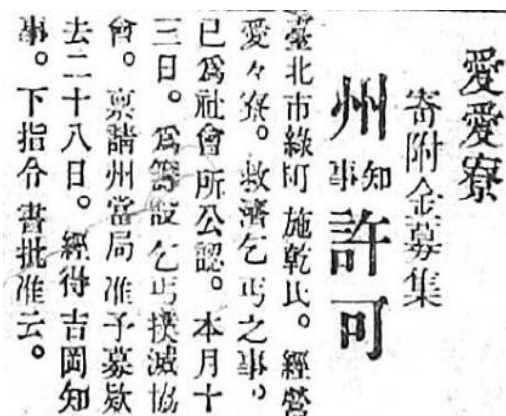 愛愛寮
寄附金募集
州知事許可
臺北市綠町施乾氏。經營
愛々寮。救濟乞丐之事。
已爲社會所公認。本月十
三日。爲籌設乞丐撲滅協
會。稟請州當局准予募欵
去二十八日。經得吉岡知
事。下指令書批准云。